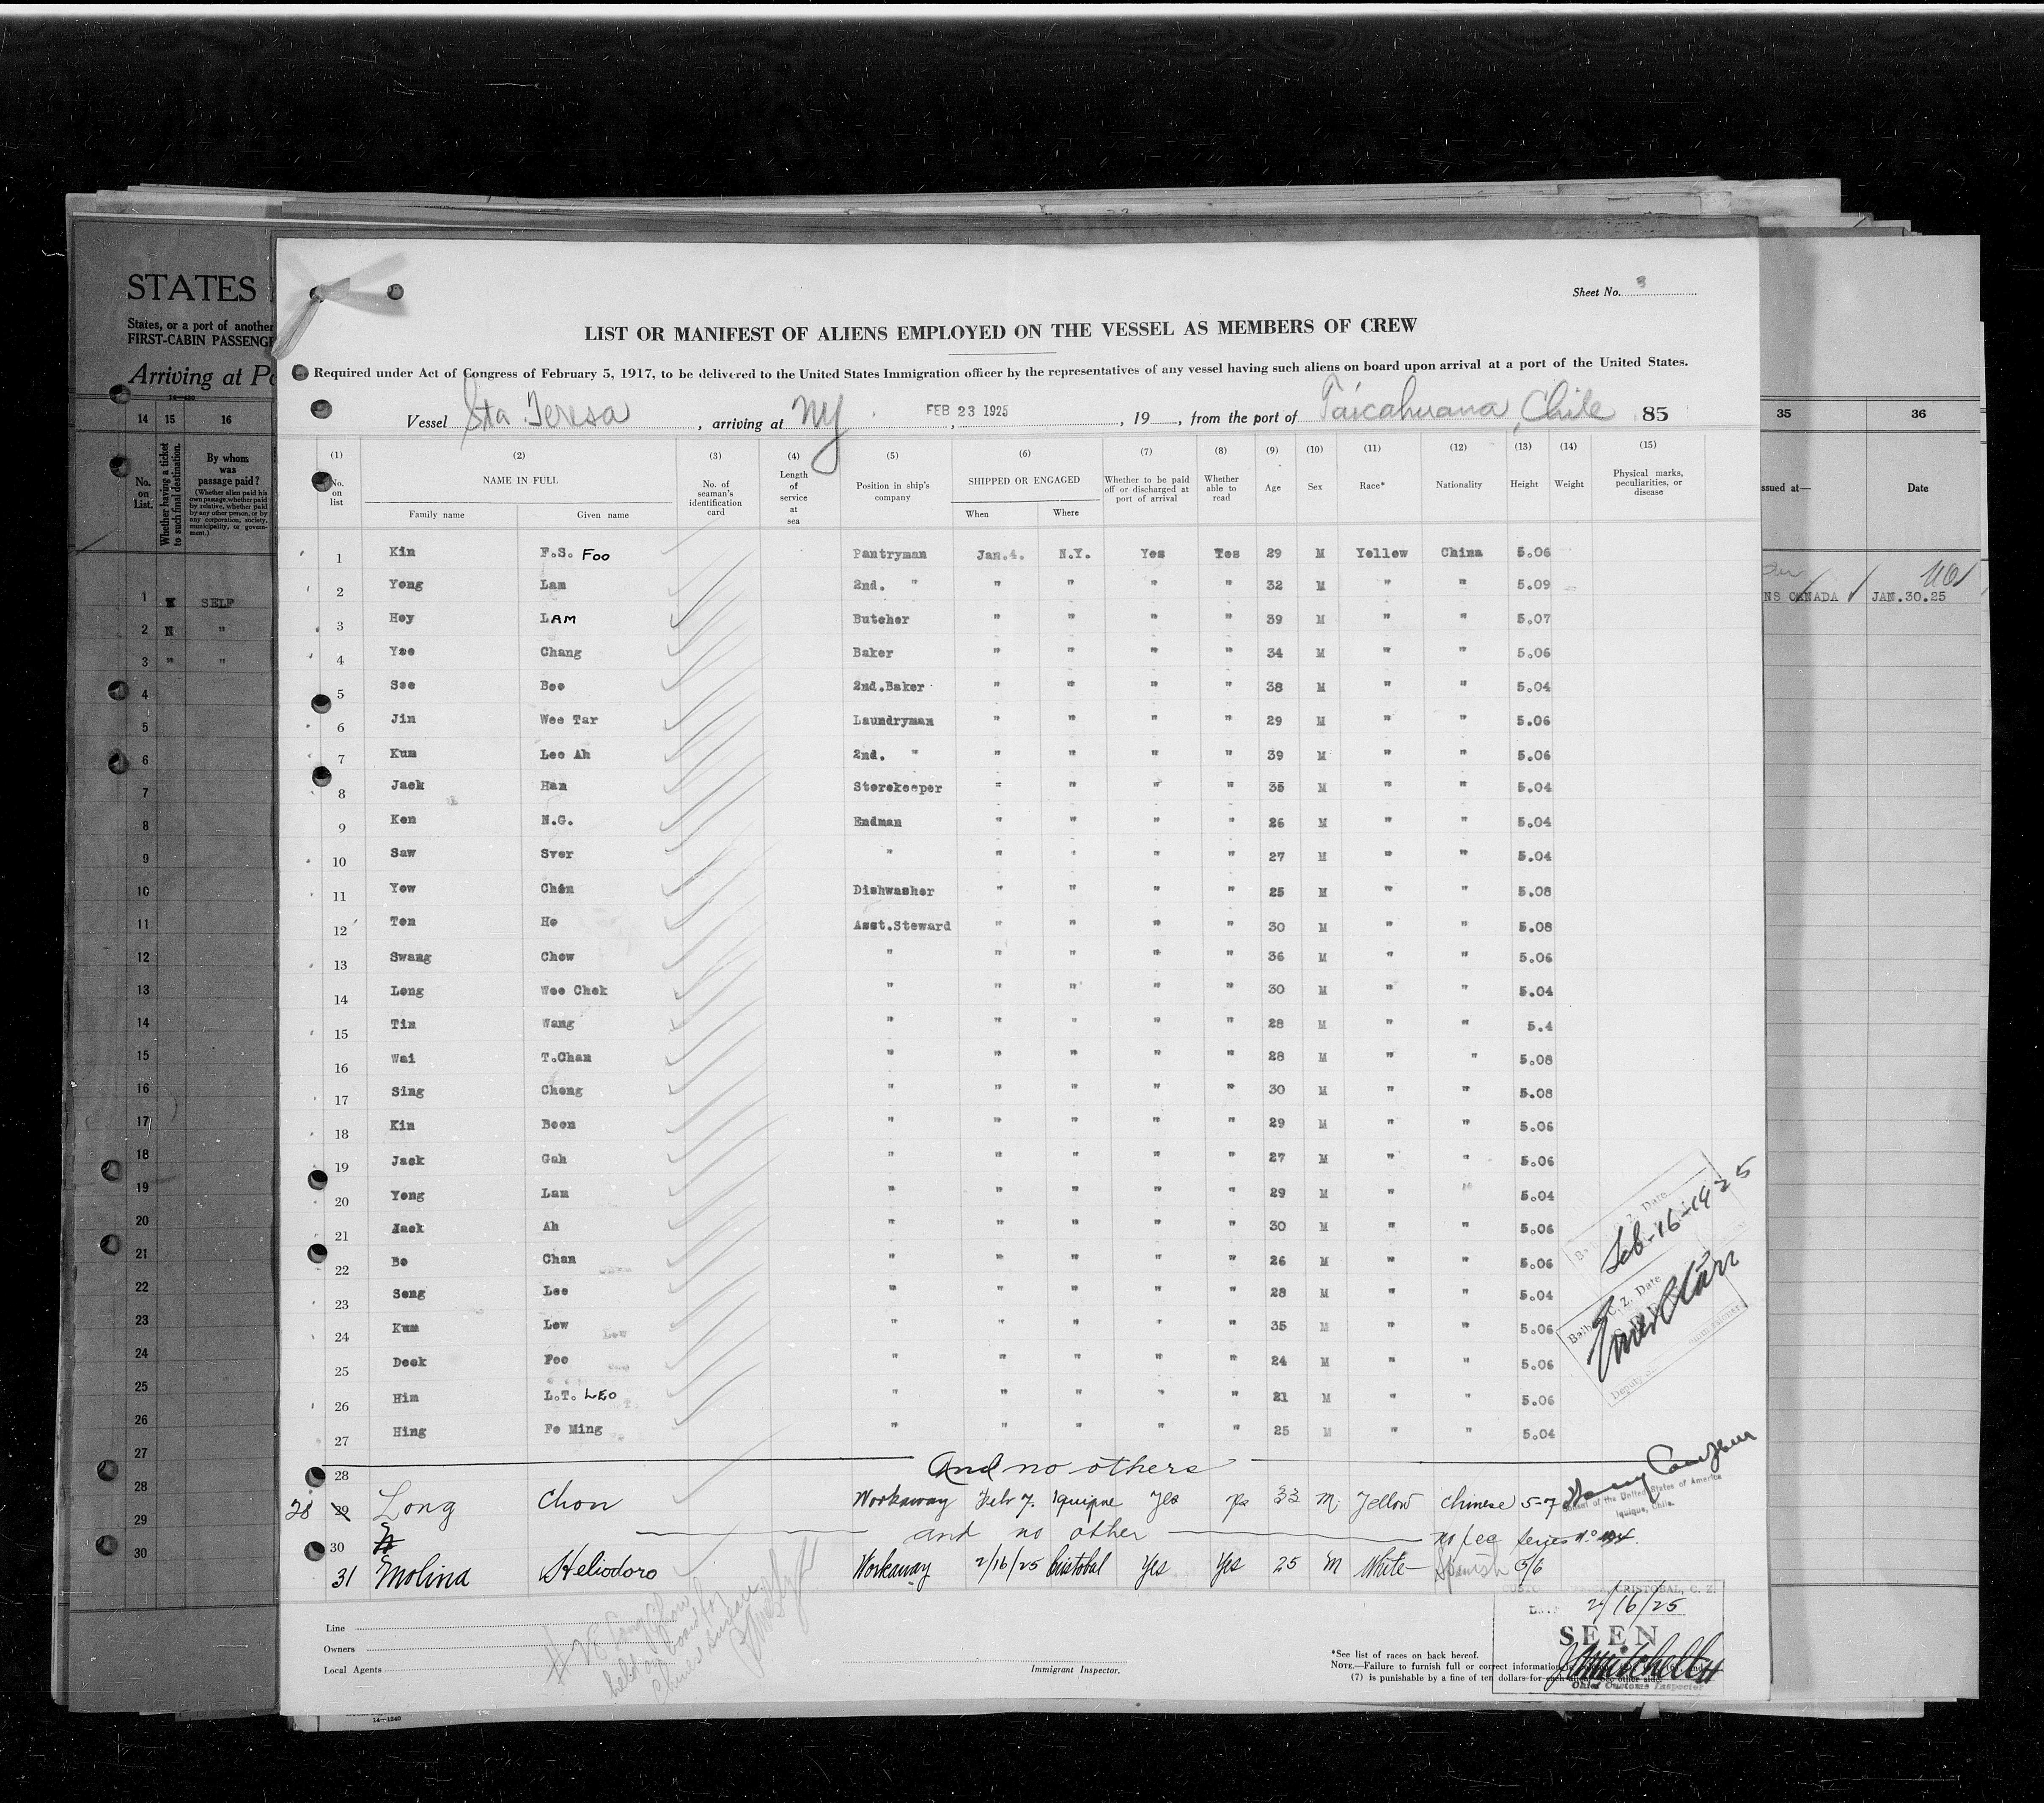 Sheet No. 3
LIST OR MANIFEST OF ALIENS EMPLOYED ON THE VESSEL AS MEMBERS OF CREW
Required under Act of Congress of February 5, 1917, to be delivered to the United States Immigration officer by the representatives of any vessel having such aliens on board upon arrival at a port of the United States.
Vessel Sta Teresa, arriving at NY, FEB 23 1925, 19, from the port of Taicahuana, Chile 85
(1) (2) (3) (4) (5) (6) (7) (8) (9) (10) (11) (12) (13) (14) (15)
No. on list NAME IN FULL Family name Given name No. of seaman's identification card Length of service at sea Position in ship's company SHIPPED OR ENGAGED When Where Whether to be paid off or discharged at port of arrival Whether able to read Age Sex Race* Nationality Height Weight Physical marks, peculiarities, or disease
1 Kin F.S. FOO Pantryman Jan.4. N.Y. Yes Yes 29 M Yellow China 5.06
2 Yong Lam 2nd. " " " " " 32 M " " 5.09
3 Hoy LAM Butcher " " " " 39 M " " 5.07
4 Yee Chang Baker " " " " 34 M " " 5.06
5 See Bee 2nd.Baker " " " " 38 M " " 5.04
6 Jin Wee Tar Laundryman " " " " 29 M " " 5.06
7 Kum Lee Ah 2nd. " " " " " 39 M " " 5.06
8 Jack Han Storekeeper " " " " 35 M " " 5.04
9 Ken N.G. Endman " " " " 26 M " " 5.04
10 Saw Sver " " " " " 27 M " " 5.04
11 Yow Chen Dishwasher " " " " 25 M " " 5.08
12 Ton Ho Asst.Steward " " " " 30 M " " 5.08
13 Swang Chow " " " " " 36 M " " 5.06
14 Long Wee Chek " " " " " 30 M " " 5.04
15 Tim Wang " " " " " 28 M " " 5.4
16 Wai T.Chan " " " " " 28 M " " 5.08
17 Sing Chong " " " " " 30 M " " 5.08
18 Kin Boon " " " " " 29 M " " 5.06
19 Jack Gah " " " " " 27 M " " 5.06
20 Yong Lam " " " " " 29 M " " 5.04
21 Jack Ah " " " " " 30 M " " 5.06
22 Bo Chan " " " " " 26 M " " 5.06
23 Song Lee " " " " " 28 M " " 5.04
24 Kum Low " " " " " 35 M " " 5.06
25 Deek Foo " " " " " 24 M " " 5.06
26 Him L.T. LEO " " " " " 21 M " " 5.06
27 Hing Fo Ming " " " " " 25 M " " 5.04
28 And no others
28 29 Long Chon Workaway Febr 7. Iquique Yes Yes 33 M. Yellow Chinese 5-7
30 and no other no fee series No
31 Molina Heliodoro Workaway 2/16/25 Cristobal Yes Yes 25 M White Spanish 5/6
Feb-16-1925
Balboa, C. Z. Date
Deputy
Consul of the United States of America
Iquique, Chile.
CRISTOBAL, C. Z.
2/16/25
SEEN
Chief Customs Inspector
Line
Owners
Local Agents
#28 Long Chon
held on board for
Chinese
Immigrant Inspector.
*See list of races on back hereof.
NOTE.—Failure to furnish full or correct information
(7) is punishable by a fine of ten dollars for each alien. See other side.
STATES
States, or a port of another
FIRST-CABIN PASSENGE
Arriving at Po
14—1240
14 15 16
No. on List.
Whether having a ticket to such final destination.
By whom was passage paid?
(Whether alien paid his own passage, whether paid by relative, whether paid by any other person, or by any corporation, society, municipality, or government.)
1 SELF
2 N "
3 " "
4
5
6
7
8
9
10
11
12
13
14
15
16
17
18
19
20
21
22
23
24
25
26
27
28
29
30
14—1240
35 36
ssued at— Date
NS CANADA JAN.30.25